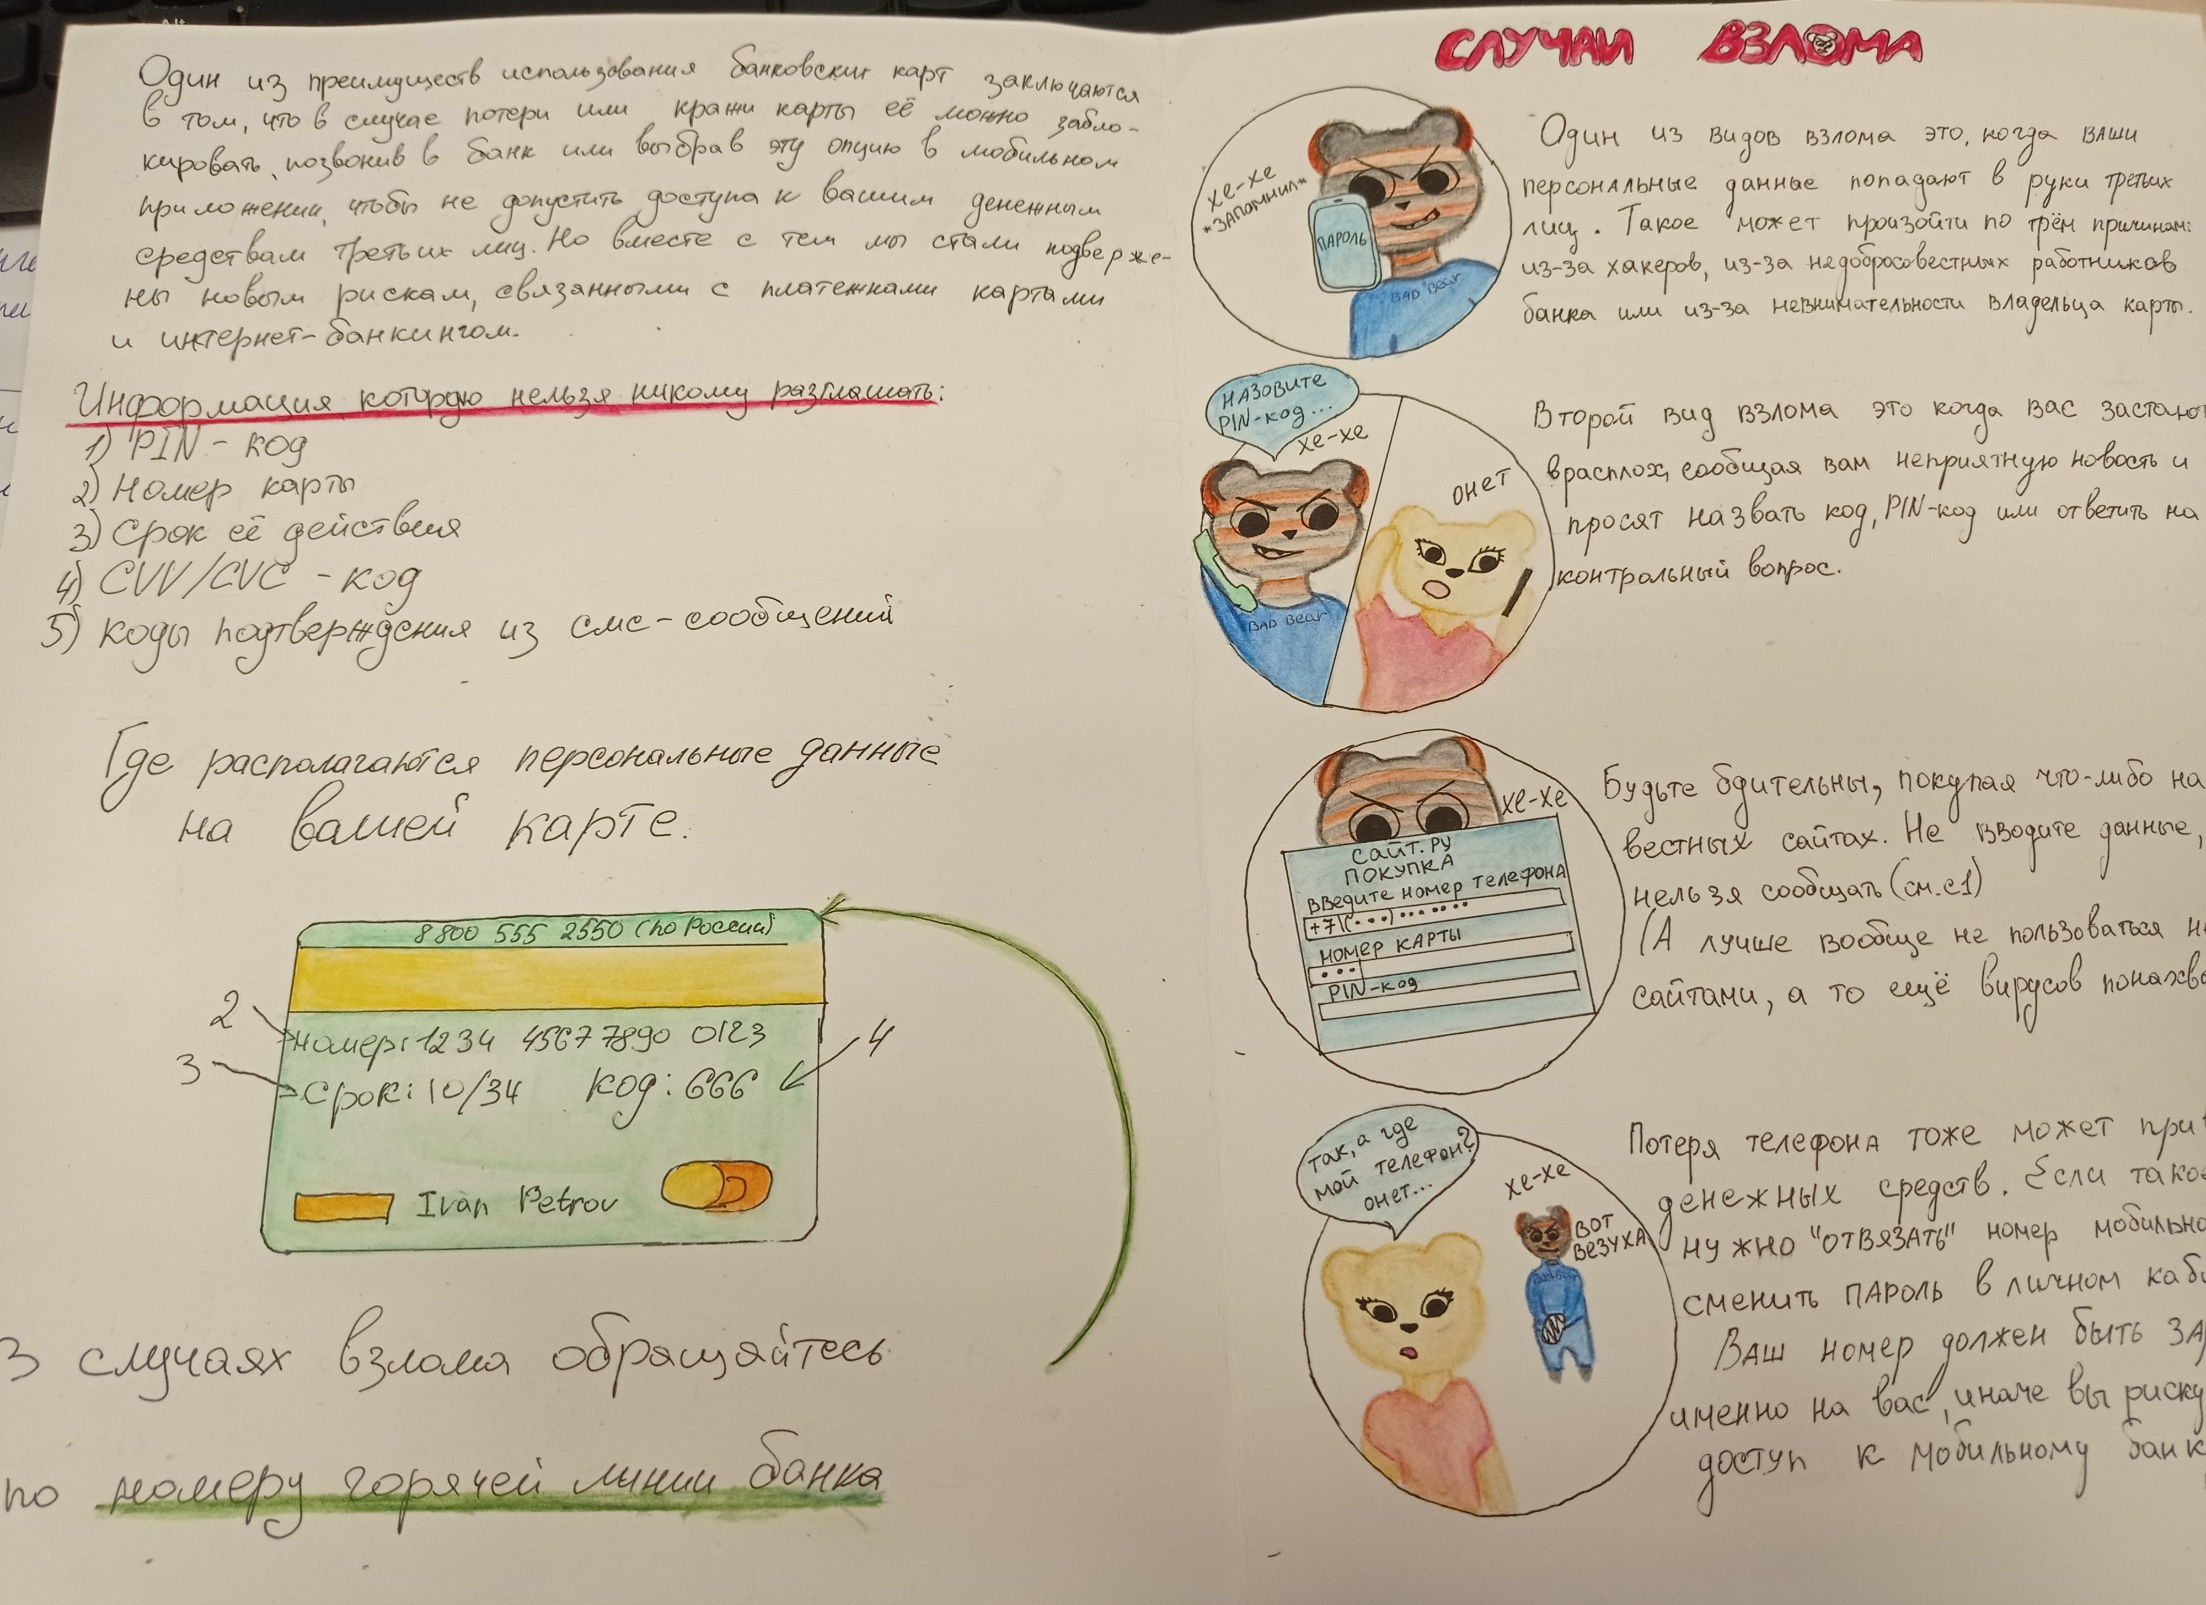 Один из преимуществ использования банковских карт заключаются
в том, что в случае потери или кражи карты её можно забло-
кировать, позвонив в банк или выбрав эту опцию в мобильном
приложении, чтобы не допустить доступа к вашим денежным
средствам третьих лиц. Но вместе с тем мы стали подверже-
ны новым рискам, связанными с платежками картами
и интернет-банкингом.
Информация, которую нельзя никому разглашать:
1) PIN-код
2) Номер карты
3) Срок её действия
4) CVV/CVC - код
5) Коды подтверждения из смс-сообщений
Где располагаются персональные данные
на вашей карте.
8 800 555 2550 (по России)
2
Номер: 1234 4567 7890 0123
3
Срок: 10/34 Код: 666
4
Ivan Petrov
В случаях взлома обращайтесь
по номеру горячей линии банка
СЛУЧАИ ВЗЛОМА
хе-хе
*ЗАПОМНИЛ*
ПАРОЛЬ
BAD Bear
Один из видов взлома это, когда ваши
персональные данные попадают в руки третьих
лиц. Такое может произойти по трём причинам:
из-за хакеров, из-за недобросовестных работников
банка или из-за невнимательности владельца карты.
НАЗОВИТЕ
PIN-код...
хе-хе
онет
BAD Bear
Второй вид взлома это когда вас застают
врасплох, сообщая вам неприятную новость и
просят назвать код, PIN-код или ответить на
контрольный вопрос.
хе-хе
САЙТ.РУ
ПОКУПКА
Введите номер телефона
+7(•••)•••••••
НОМЕР КАРТЫ
•••
PIN-код
Будьте бдительны, покупая что-либо на
вестных сайтах. Не вводите данные,
нельзя сообщать (см.с1)
(А лучше вообще не пользоваться
сайтами, а то ещё вирусов
так, а где
мой телефон?
онет...
хе-хе
ВОТ
ВЕЗУХА
Потеря телефона тоже может
денежных средств. Если
нужно "ОТВЯЗАТЬ" номер
сменить ПАРОЛЬ в личном
Ваш номер должен быть
именно на вас, иначе вы
доступ к мобильному